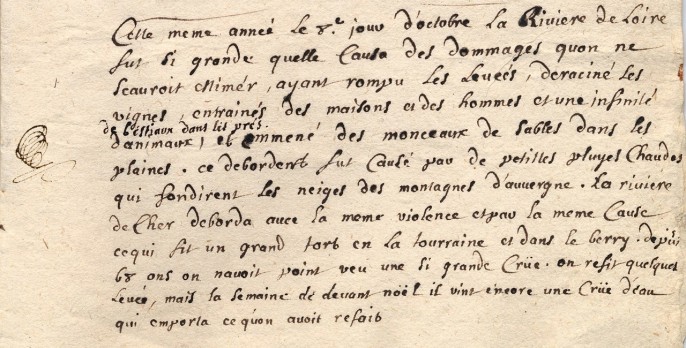 Cette meme année le 8.e jour d'octobre la Riviere de Loire
fut si grande quelle Causa des dommages quon ne
scauroit estimér, ayant rompu les Leveés, deraciné les
vignes, entrainés des maisons et des hommes et une infinité
de bestiaux dans les prés.
d'animaux, et emmené des monceaux de sables dans les
plaines. ce debordemt fut Causé par de petittes pluyes Chaudes
qui fondirent les neiges des montagnes d'auvergne. La riviére
de Cher deborda avec la meme violence et par la meme Cause
ce qui fit un grand tort en la tourraine et dans le berry. depuis
68 ans on navoit point veu une si grande Crüe. on refit quelques
Leveés, mais la semaine de devant noël il vint encore une Crüe d'eau
qui emporta ce qu'on avoit refait